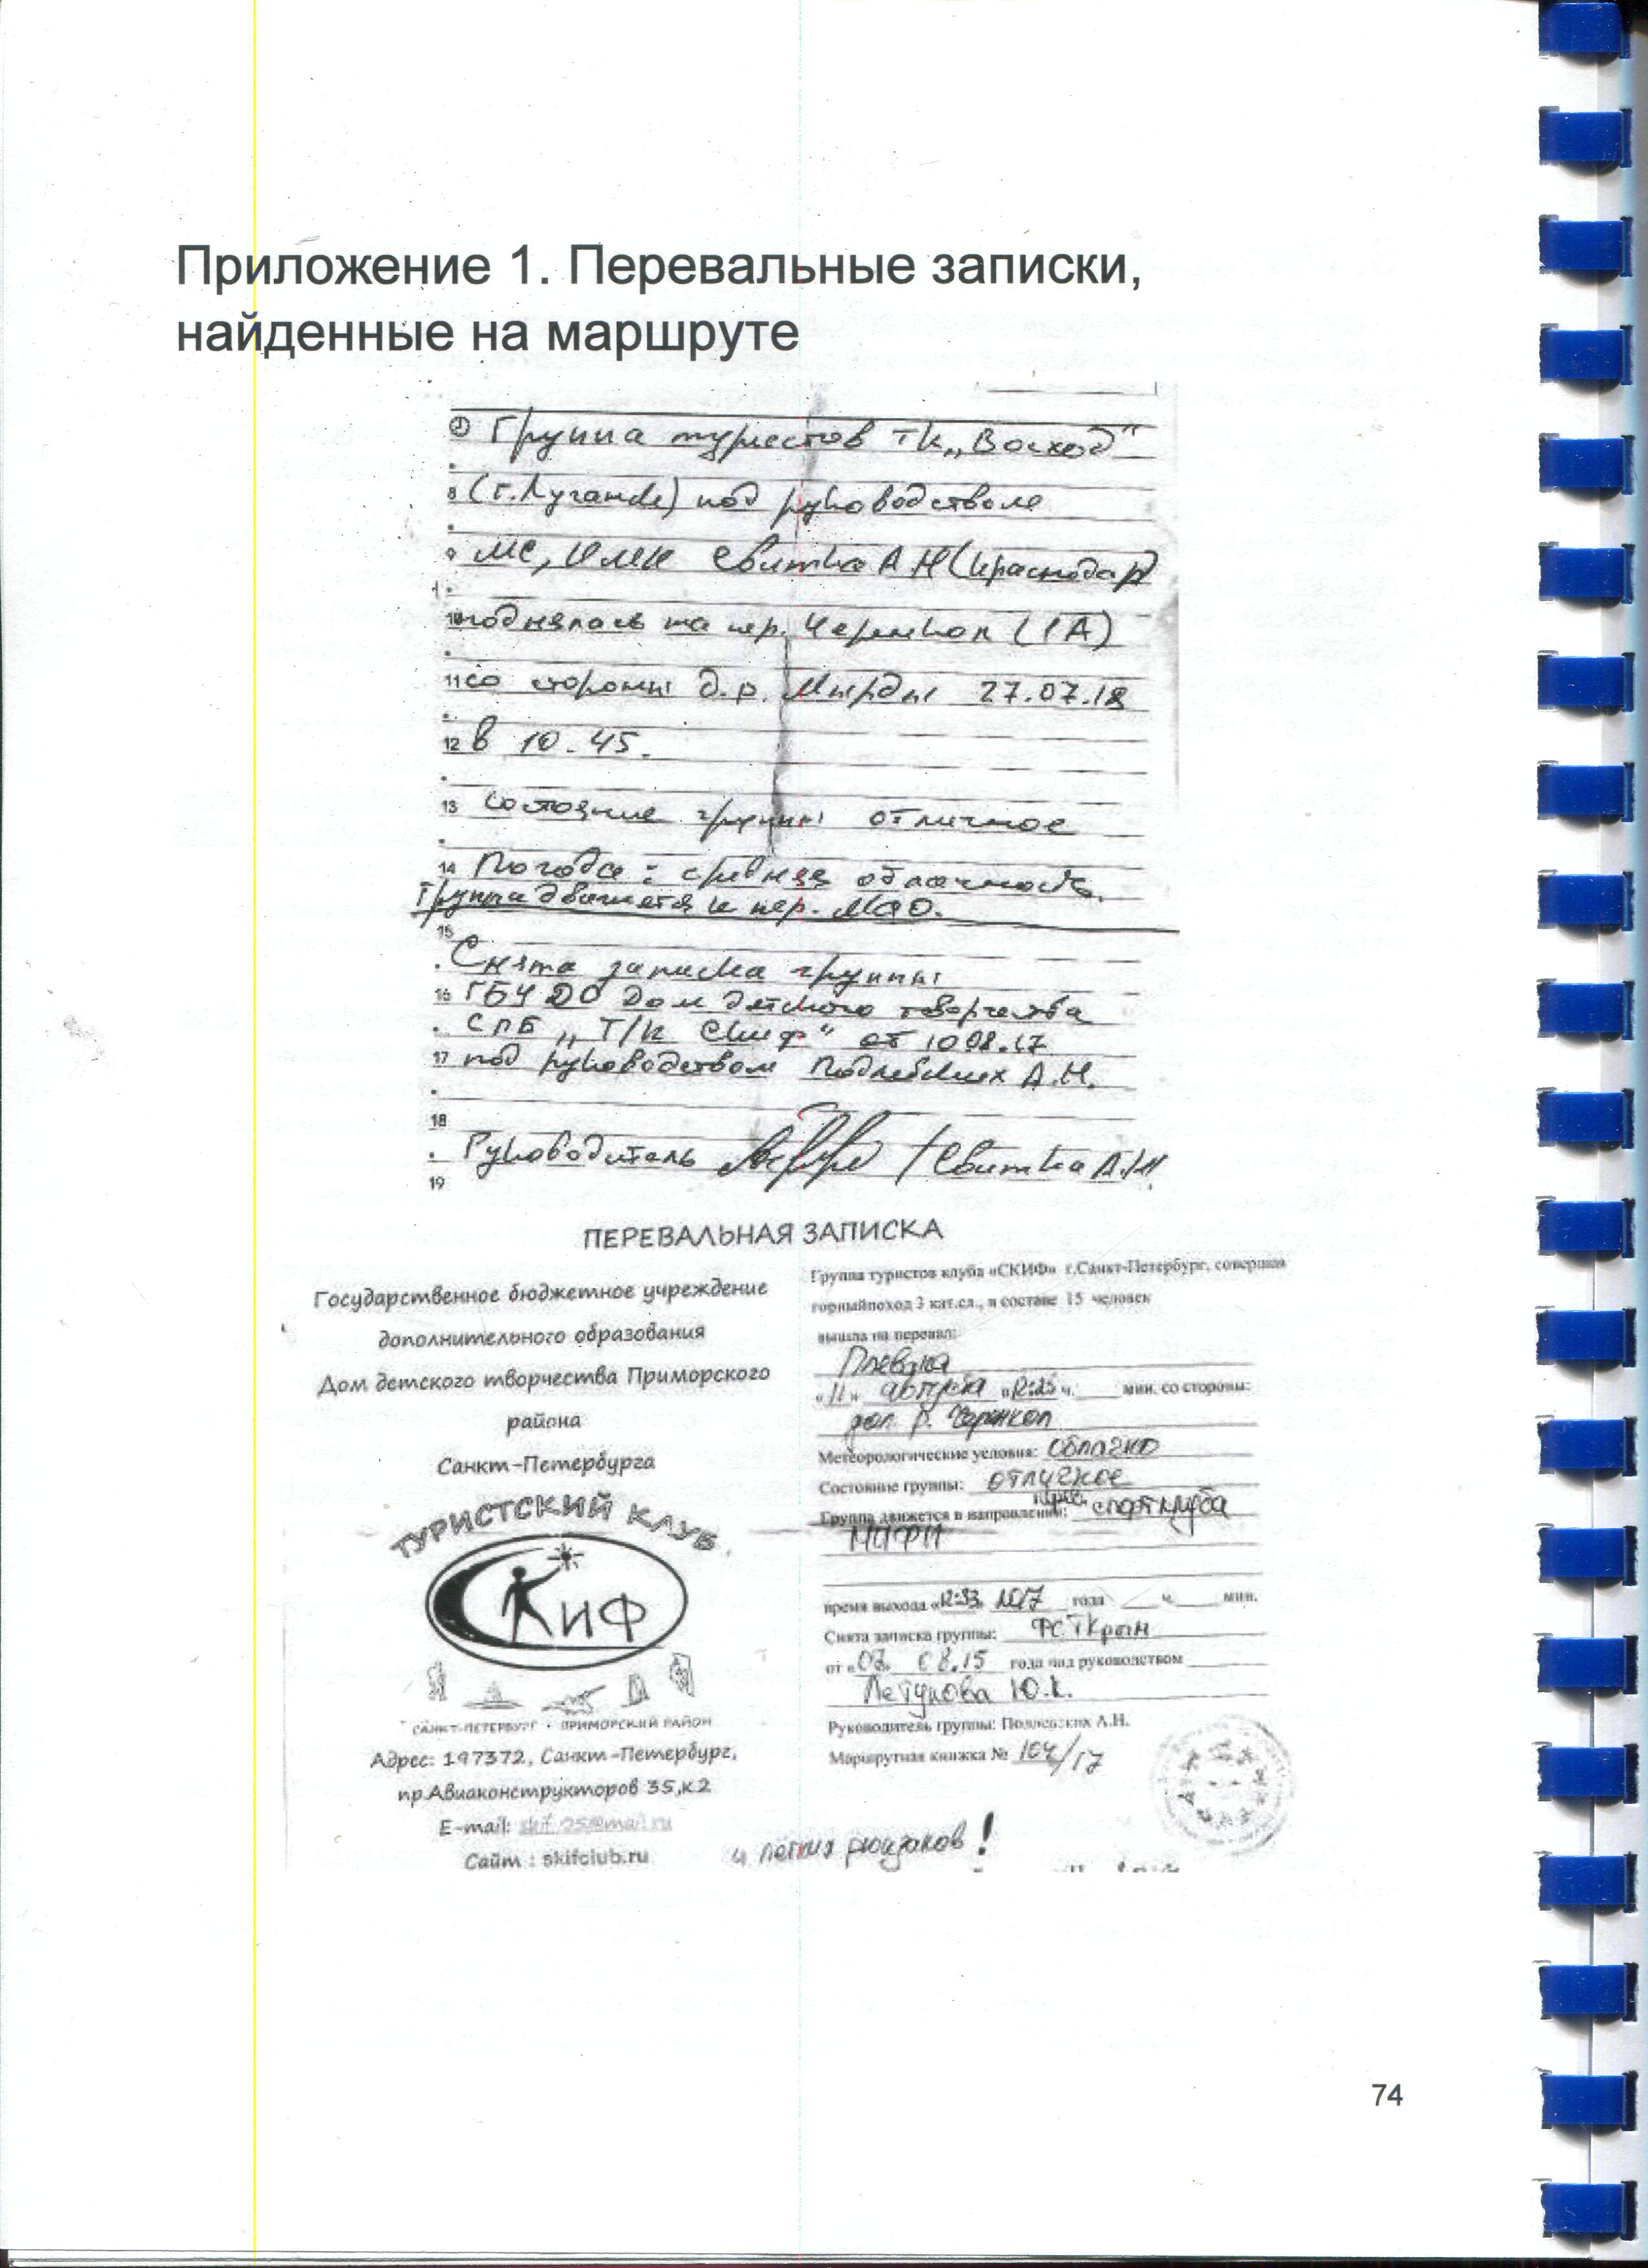 Приложение 1. Перевальные записки,
найденные на маршруте
Группа туристов ТК „Восход"
8 (г. Луганск) под руководством
9 МС, Свитка А Н (Краснодар)
10 поднялась на пер. Чернкол (1А)
11 со стороны д.р. Мырды 27.07.18
12 в 10.45.
13 Состояние группы отличное
14 Погода: средняя облачность.
Группа движется к пер. МАО.
15
Снята записка группы
16 ГБУ ДО Дом детского творчества
СПБ „Т/К Скиф" от 10 08.17
17 под руководством Подлевских А.Н.
18
Руководитель / Свитка А.Н.
19
ПЕРЕВАЛЬНАЯ ЗАПИСКА
Государственное бюджетное учреждение
дополнительного образования
Дом детского творчества Приморского
района
Санкт-Петербурга
ТУРИСТСКИЙ КЛУБ
СКИФ
САНКТ-ПЕТЕРБУРГ • ПРИМОРСКИЙ РАЙОН
Адрес: 197372, Санкт-Петербург,
пр.Авиаконструкторов 35,к.2
E-mail: skif_25@mail.ru
Сайт : skifclub.ru
Группа туристов клуба «СКИФ» г.Санкт-Петербург, совершая
горныйпоход 3 кат.сл., в составе 15 человек
вышла на перевал:
Плевака
«11» августа «12:25 ч. мин. со стороны:
дол. р. Чернкол
Метеорологические условия: облачно
Состояние группы: отличное
Группа движется в направлении: спортклуба
МИФИ
время выхода «12:33 2017 года ч. мин.
Снята записка группы: ФСТ Крым
от «07» 08.15 года под руководством
Летунова Ю.К.
Руководитель группы: Подлевских А.Н.
Маршрутная книжка № 104/17
и лёгких рюкзаков!
74